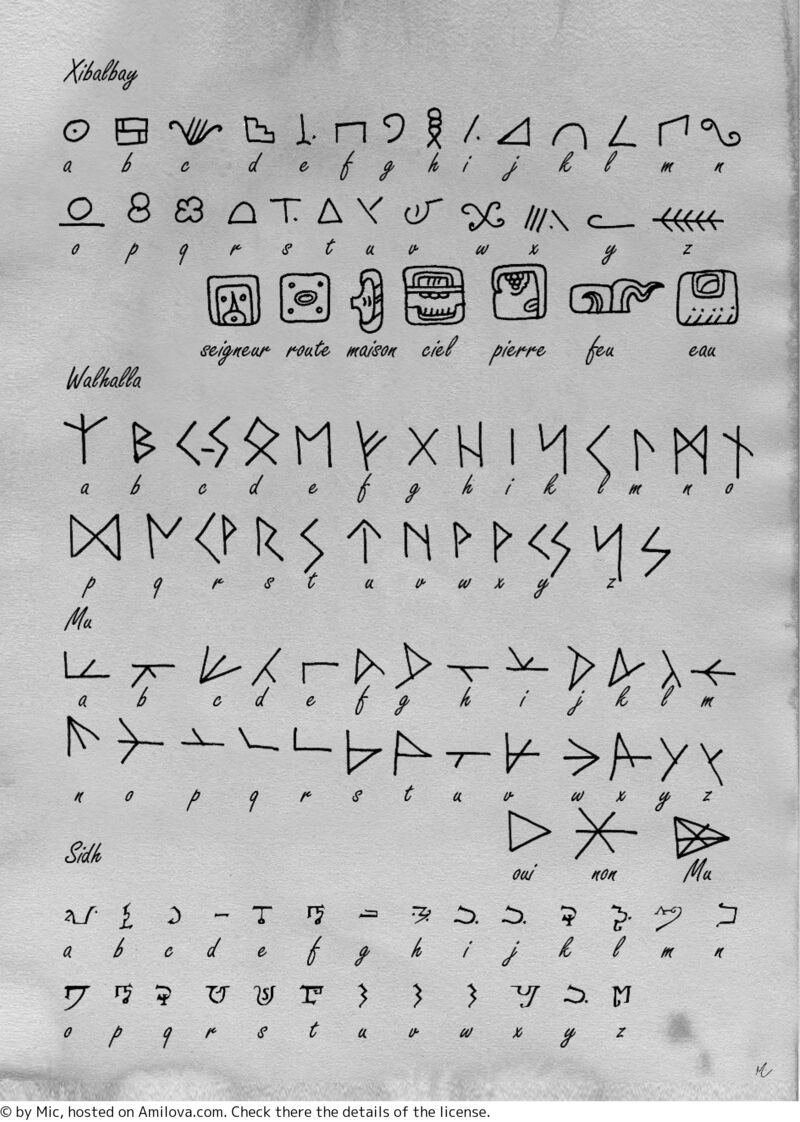 Xibalbay
a b c d e f g h i j k l m n
o p q r s t u v w x y z
seigneur route maison ciel pierre feu eau
Walhalla
a b c d e f g h i k l m n o
p q r s t u v w x y z
Mu
a b c d e f g h i j k l m
n o p q r s t u v w x y z
oui non Mu
Sidh
a b c d e f g h i j k l m n
o p q r s t u v w x y z
© by Mic, hosted on Amilova.com. Check there the details of the license.